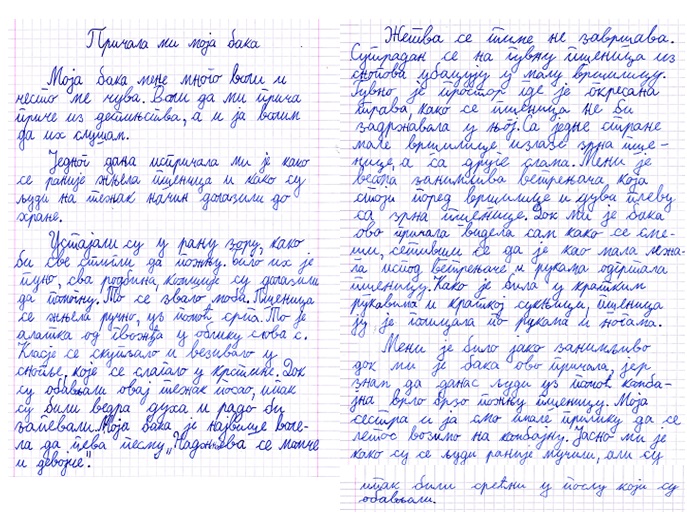 Причала ми моја бака
Моја бака мене много воли и
често ме чува. Воли да ми прича
приче из детињства, а и ја волим
да их слушам.
Једног дана испричала ми је како
се раније жњела пшеница и како су
људи на тежак начин долазили до
хране.
Устајали су у рану зору, како
би све стигли да пожњу. Било их је
пуно, сва родбина, комшије су долазили
да помогну. То се звало моба. Пшеница
се жњела ручно, уз помоћ српа. То је
алатка од гвожђа у облику слова с.
Класје се скупљало и везивало у
снопље, које се слагало у крстине. Док
су обављали овај тежак посао, ипак
су били ведра духа, и радо су
запевали. Моја бака је највише воле-
ла да пева песму „Надожњева се момче
и девојче“.
Жетва се тиме не завршава.
Сутрадан се на гувну пшеница из
снопова убацују у малу вршилицу.
Гувно је простор где је окресана
трава, како се пшеница не би
задржавала у њој. Са једне стране
мале вршилице излазе зрна пше-
нице, а са друге слама. Мени је
занимљива ветрењача која
стоји поред вршилице и дуви плеву
са зрна пшенице. Док ми је бака
ово причала видела сам како се сме-
ши, сетивши се да је као мала лежа-
ла испод ветрењаче и рукама одгртала
пшеницу. Како је била у кратким
рукавима и краткој сукњици, пшеница
ју је голицала по рукама и ногама.
Мени је било јако занимљиво
док ми је бака ово причала, јер
знам да данас људи уз помоћ комба-
јна врло брзо пожњу пшеницу. Моја
сестра и ја смо имале прилику да се
летос возимо на комбајну. Јасно ми је
како су се људи раније мучили, али су
ипак били срећни у послу који су
обављали.